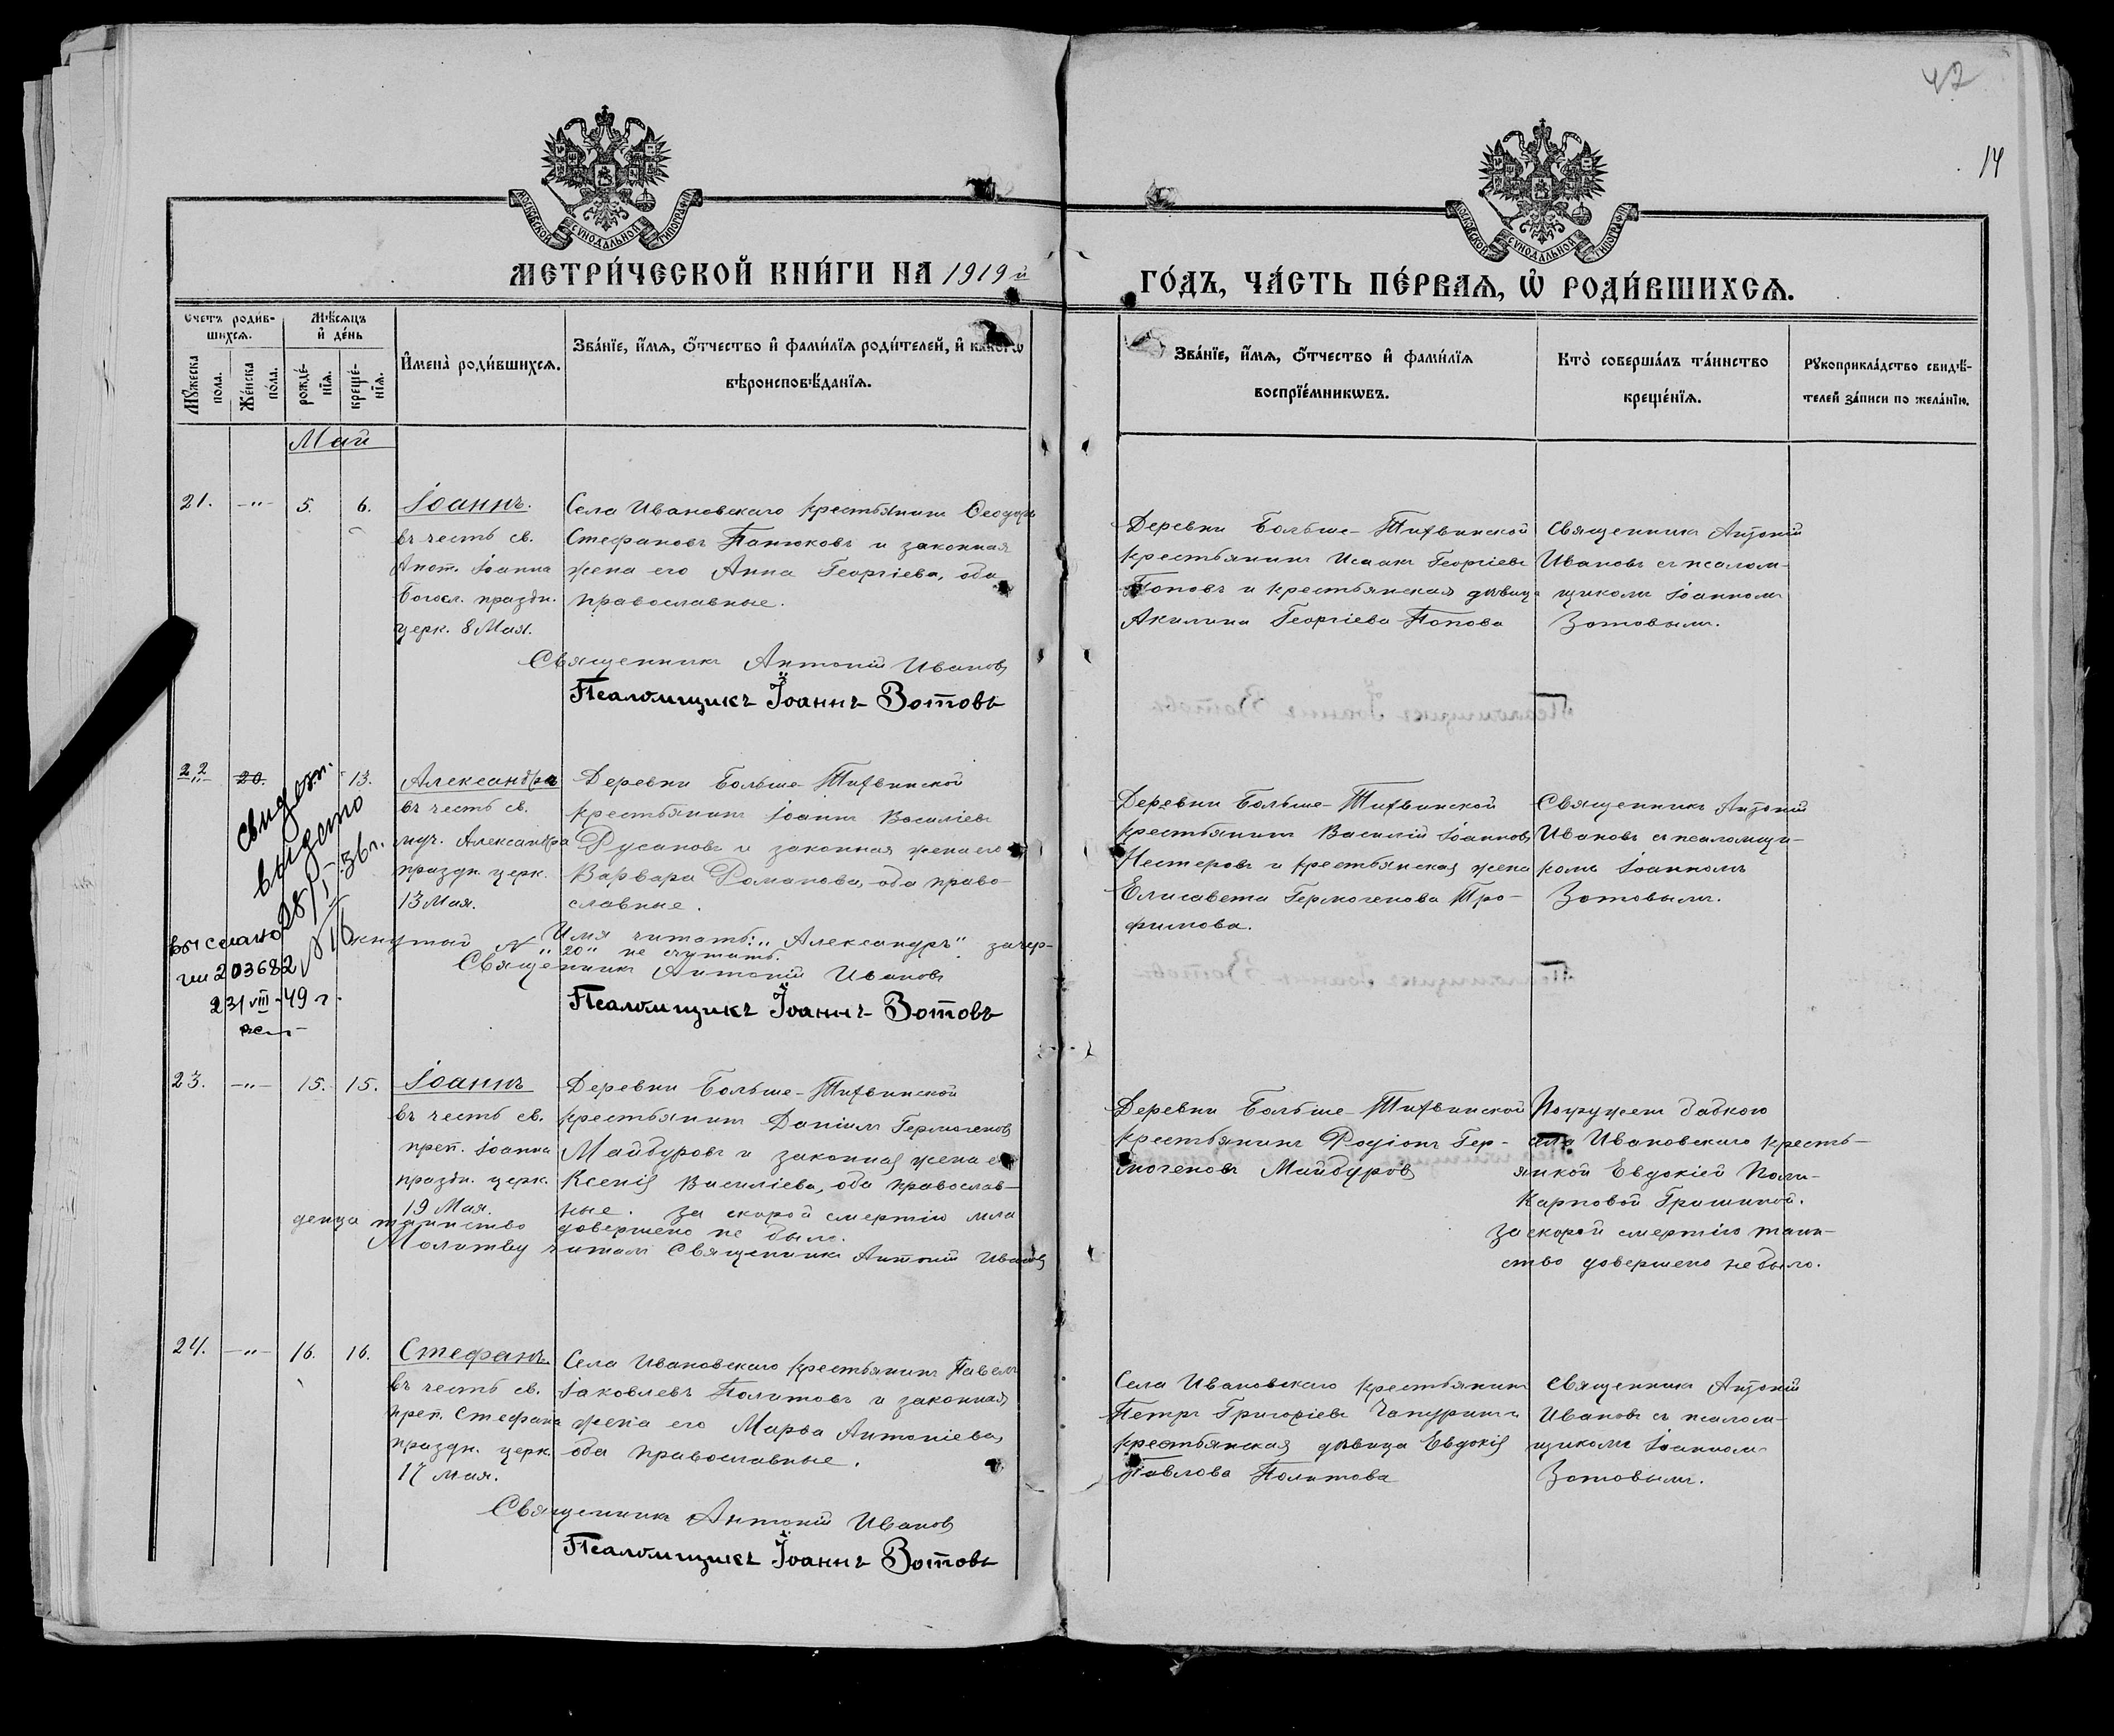 42
14
МОСКОВСКОЙ СѴНОДАЛЬНОЙ ТИПОГРАФІИ
МОСКОВСКОЙ СѴНОДАЛЬНОЙ ТИПОГРАФІИ
МЕТРИ́ЧЕСКОЙ КНИ́ГИ НА 1919 й
ГО́ДЪ, ЧА́СТЬ ПЕ́РВАѦ, Ѡ҆ РОДИ́ВШИХСѦ.
Счетъ роди́в-
шихсѧ.
Мꙋ́жеска пола.
Же́нска по́ла.
Мѣ́сѧцъ
и҆ де́нь
рожде́-
нїѧ.
креще́-
нїѧ.
И҆мена̀ роди́вшихсѧ.
Зва́нїе, и҆́мѧ, ѻ҆́тчество и҆ фами́лїѧ роди́телей, и҆ како́гѡ
вѣроисповѣ́данїѧ.
Зва́нїе, и҆́мѧ, ѻ҆́тчество и҆ фами́лїѧ
воспрїе́мникѡвъ.
Кто̀ соверша́лъ та́инство
креще́нїѧ.
Рꙋкоприкла́дство свидѣ́-
телей за́писи по жела́нїю.
Май
21. -"- 5. 6.
Іоаннъ.
въ честь св.
Апот. Іоанна
Богосл. праздн.
церк. 8 Мая.
Села Ивановскаго крестьянинъ Ѳеодоръ
Стефановъ Панюковъ и законная
жена его Анна Георгіева, оба
православные.
Священникъ Антоній Ивановъ
Псаломщикъ Іоаннъ Зотовъ
Деревни Больше-Тихвинской
крестьянинъ Исаакъ Георгіевъ
Поповъ и крестьянская дѣвица
Акилина Георгіева Попова
Священникъ Антоній
Ивановъ съ псалом-
щикомъ Іоанномъ
Зотовымъ.
22 20. 13.
Александра
въ честь св.
муч. Александра
праздн. церк.
13 Мая.
Деревни Больше-Тихвинской
крестьянинъ Іоаннъ Василіевъ
Русановъ и законная жена его
Варвара Романова, оба право-
славные.
Имя читать: „Александръ". зачер-
кнутый № „20" не считать.
Священникъ Антоній Ивановъ
Псаломщикъ Іоаннъ Зотовъ
свидет.
выдано
28/I-36 г.
№ 16
выслано
203682
23/VIII-49 г.
Деревни Больше-Тихвинской
крестьянинъ Василій Іоанновъ
Нестеровъ и крестьянская жена
Елисавета Гермогенова Тро-
фимова.
Священникъ Антоній
Ивановъ съ псаломщи-
комъ Іоанномъ
Зотовымъ.
23. -"- 15. 15.
Іоаннъ
въ честь св.
преп. Іоанна
праздн. церк.
19 Мая.
Деревни Больше-Тихвинской
крестьянинъ Даніилъ Гермогеновъ
Майдуровъ и законная жена его
Ксенія Василіева, оба православ-
ные. За скорой смертію мла
денца таинство довершено не было.
Молитву читалъ Священникъ Антоній Ивановъ
Деревни Больше-Тихвинской
крестьянинъ Родіонъ Гер-
могеновъ Майдуровъ
Погруженъ бабкою
села Ивановскаго кресть-
янкой Евдокіей Поли-
карповой Гришиной.
За скорой смертію таин-
ство довершено не было.
24. -"- 16. 16.
Стефанъ.
въ честь св.
преп. Стефана
праздн. церк.
17 Мая.
Села Ивановскаго крестьянинъ Павелъ
Іаковлевъ Политовъ и законная
жена его Марѳа Антоніева,
оба православные.
Священникъ Антоній Ивановъ
Псаломщикъ Іоаннъ Зотовъ
Села Ивановскаго крестьянинъ
Петръ Григоріевъ Чапуринъ и
крестьянская дѣвица Евдокія
Павлова Политова
Священникъ Антоній
Ивановъ съ псалом-
щикомъ Іоанномъ
Зотовымъ.